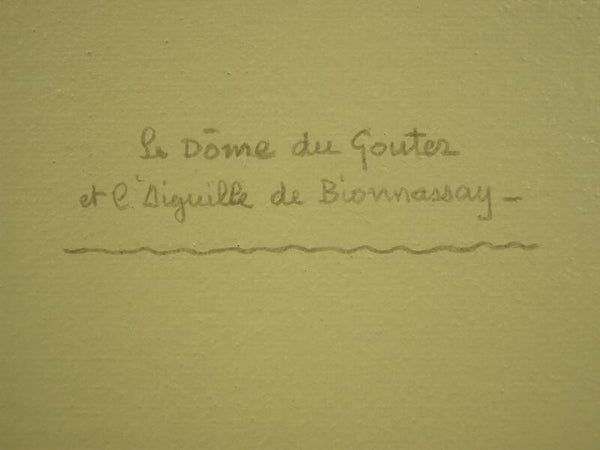 Le Dôme du Gouter
et l'Aiguille de Bionnassay -